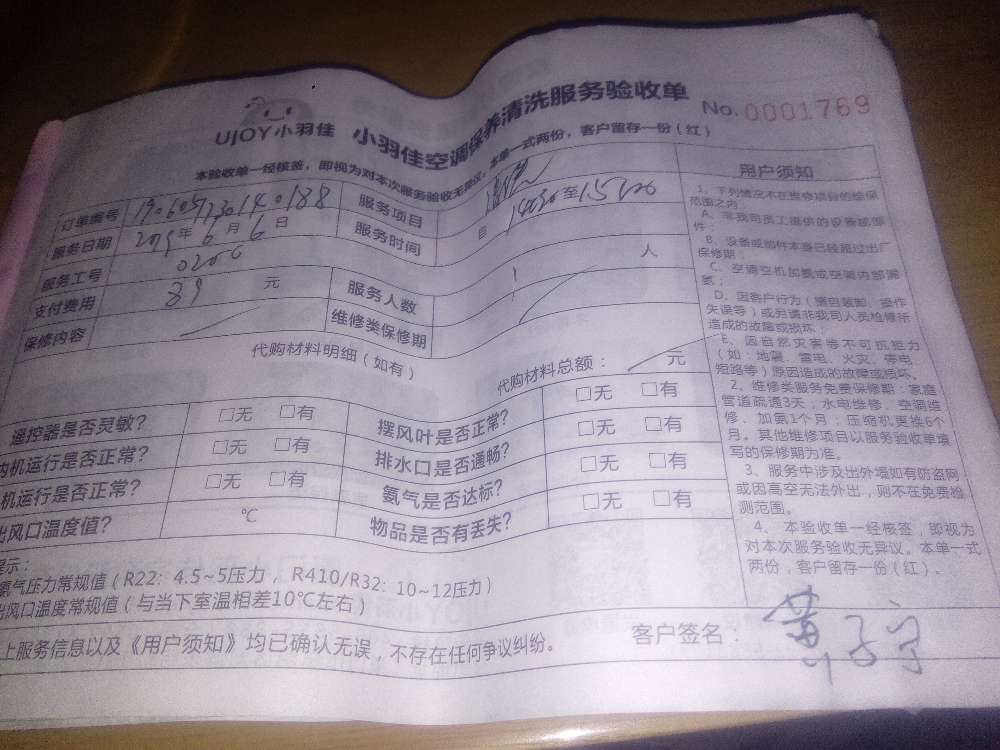 UJOY小羽佳 小羽佳空调保养清洗服务验收单 No. 0001769
本验收单一经核签，即视为对本次服务验收无异议。本单一式两份，客户留存一份（红）
订单编号 服务项目
服务日期 2019年6月6日 服务时间 14:30至15:00
服务工号 0206 服务人数 1 人
支付费用 39 元 维修类保修期
保修内容
代购材料明细（如有） 代购材料总额： 元
遥控器是否灵敏？ □无 □有 摆风叶是否正常？ □无 □有
内机运行是否正常？ □无 □有 排水口是否通畅？ □无 □有
机运行是否正常？ □无 □有 氨气是否达标？ □无 □有
出风口温度值？ ℃ 物品是否有丢失？ □无 □有
提示：
氨气压力常规值（R22: 4.5~5压力，R410/R32: 10~12压力）
出风口温度常规值（与当下室温相差10℃左右）
上服务信息以及《用户须知》均已确认无误，不存在任何争议纠纷。 客户签名：
用户须知
1、下列情况不在维修项目的维保
范围之内：
A、非我司员工提供的设备或部
件；
B、设备或部件本身已经超过出厂
保修期；
C、空调空机加氨或空调内部漏
氨；
D、因客户行为（擅自装卸、操作
失误等）或另请非我司人员检修所
造成的故障或损坏；
E、因自然灾害等不可抗拒力
（如：地震、雷电、火灾、停电、
短路等）原因造成的故障或损坏。
2、维修类服务免费保修期：家庭
管道疏通3天，水电维修、空调维
修、加氨1个月；压缩机更换6个
月。其他维修项目以服务验收单填
写的保修期为准。
3、服务中涉及出外墙如有防盗网
或因高空无法外出，则不在免费检
测范围。
4、本验收单一经核签，即视为
对本次服务验收无异议。本单一式
两份，客户留存一份（红）。